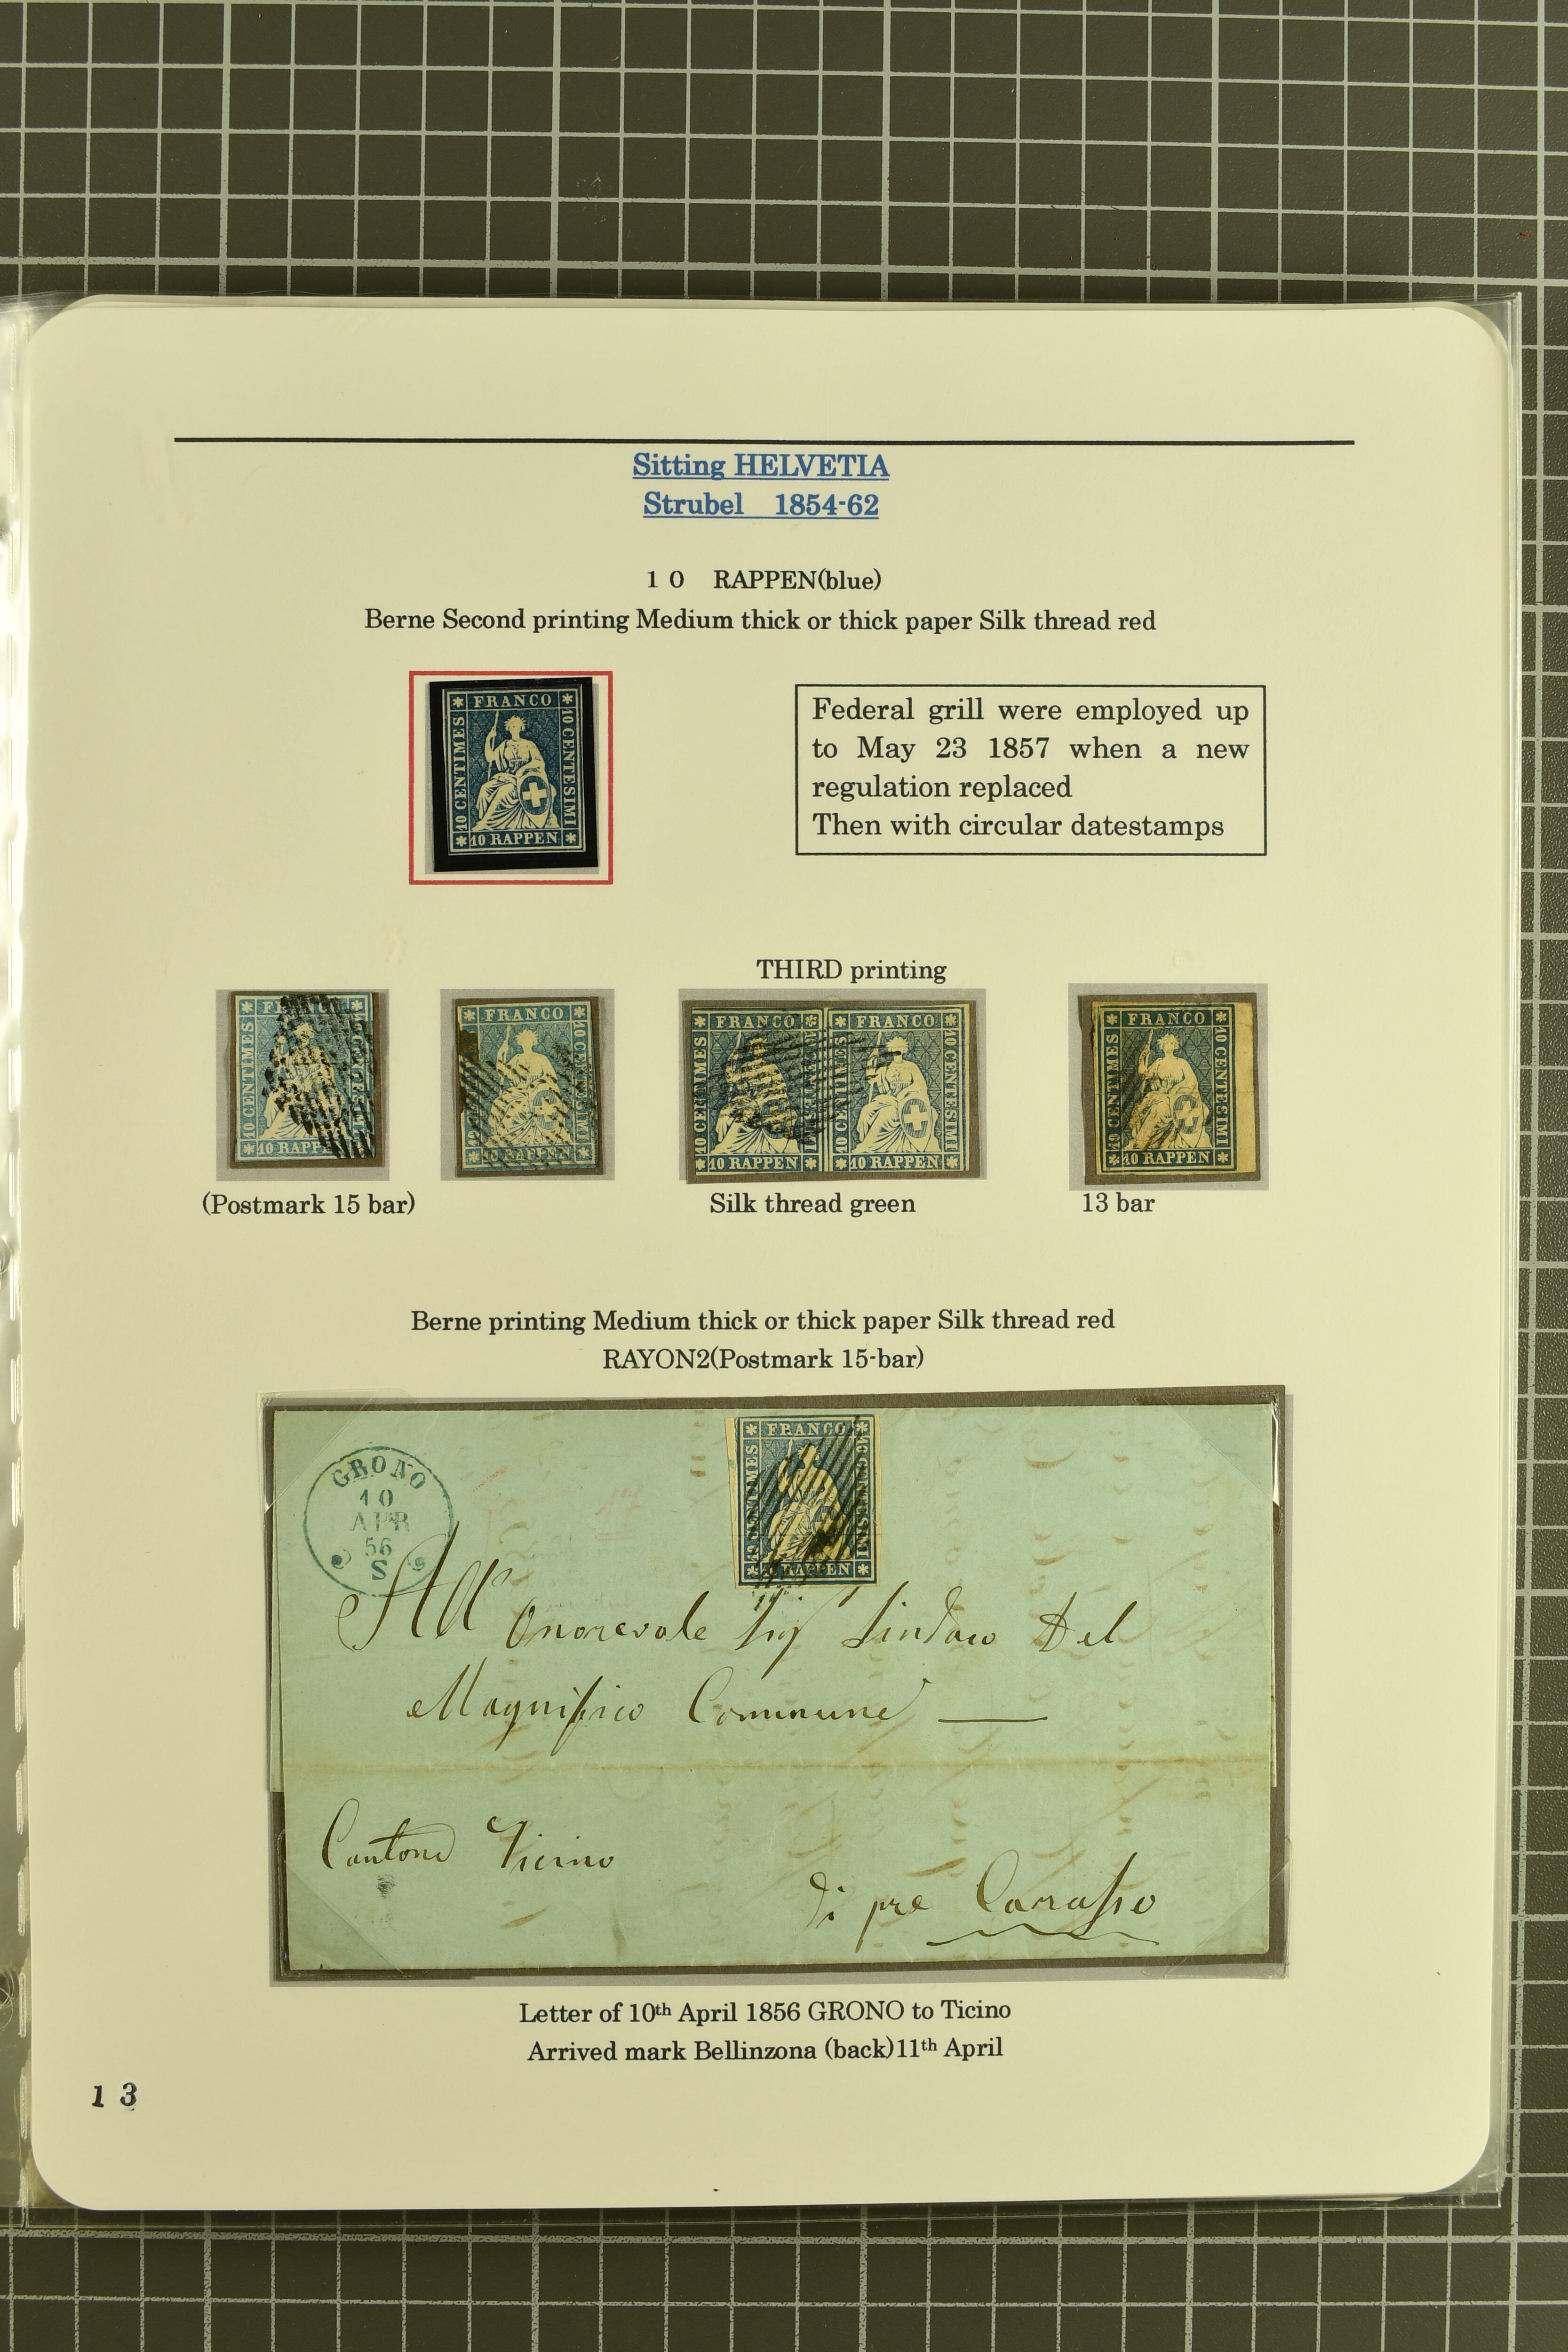 Sitting HELVETIA
Strubel 1854-62
１０ RAPPEN(blue)
Berne Second printing Medium thick or thick paper Silk thread red
FRANCO
10 CENTIMES
10 CENTESIMI
10 RAPPEN
Federal grill were employed up
to May 23 1857 when a new
regulation replaced
Then with circular datestamps
THIRD printing
10 CENTIMES
10 RAPPEN
FRANCO
10 CENTESIMI
10 RAPPEN
FRANCO
10 CENTIMES
10 RAPPEN
FRANCO
10 CENTIMES
10 CENTESIMI
10 RAPPEN
FRANCO
10 CENTIMES
10 CENTESIMI
10 RAPPEN
(Postmark 15 bar)
Silk thread green
13 bar
Berne printing Medium thick or thick paper Silk thread red
RAYON2(Postmark 15-bar)
FRANCO
10 CENTIMES
10 CENTESIMI
10 RAPPEN
GRONO
10
APR
56
S
All' Onorevole Sig Sindaco Del
Magnifico Commune
Cantone Ticino
Di pre Carasso
Letter of 10th April 1856 GRONO to Ticino
Arrived mark Bellinzona (back)11th April
1 3